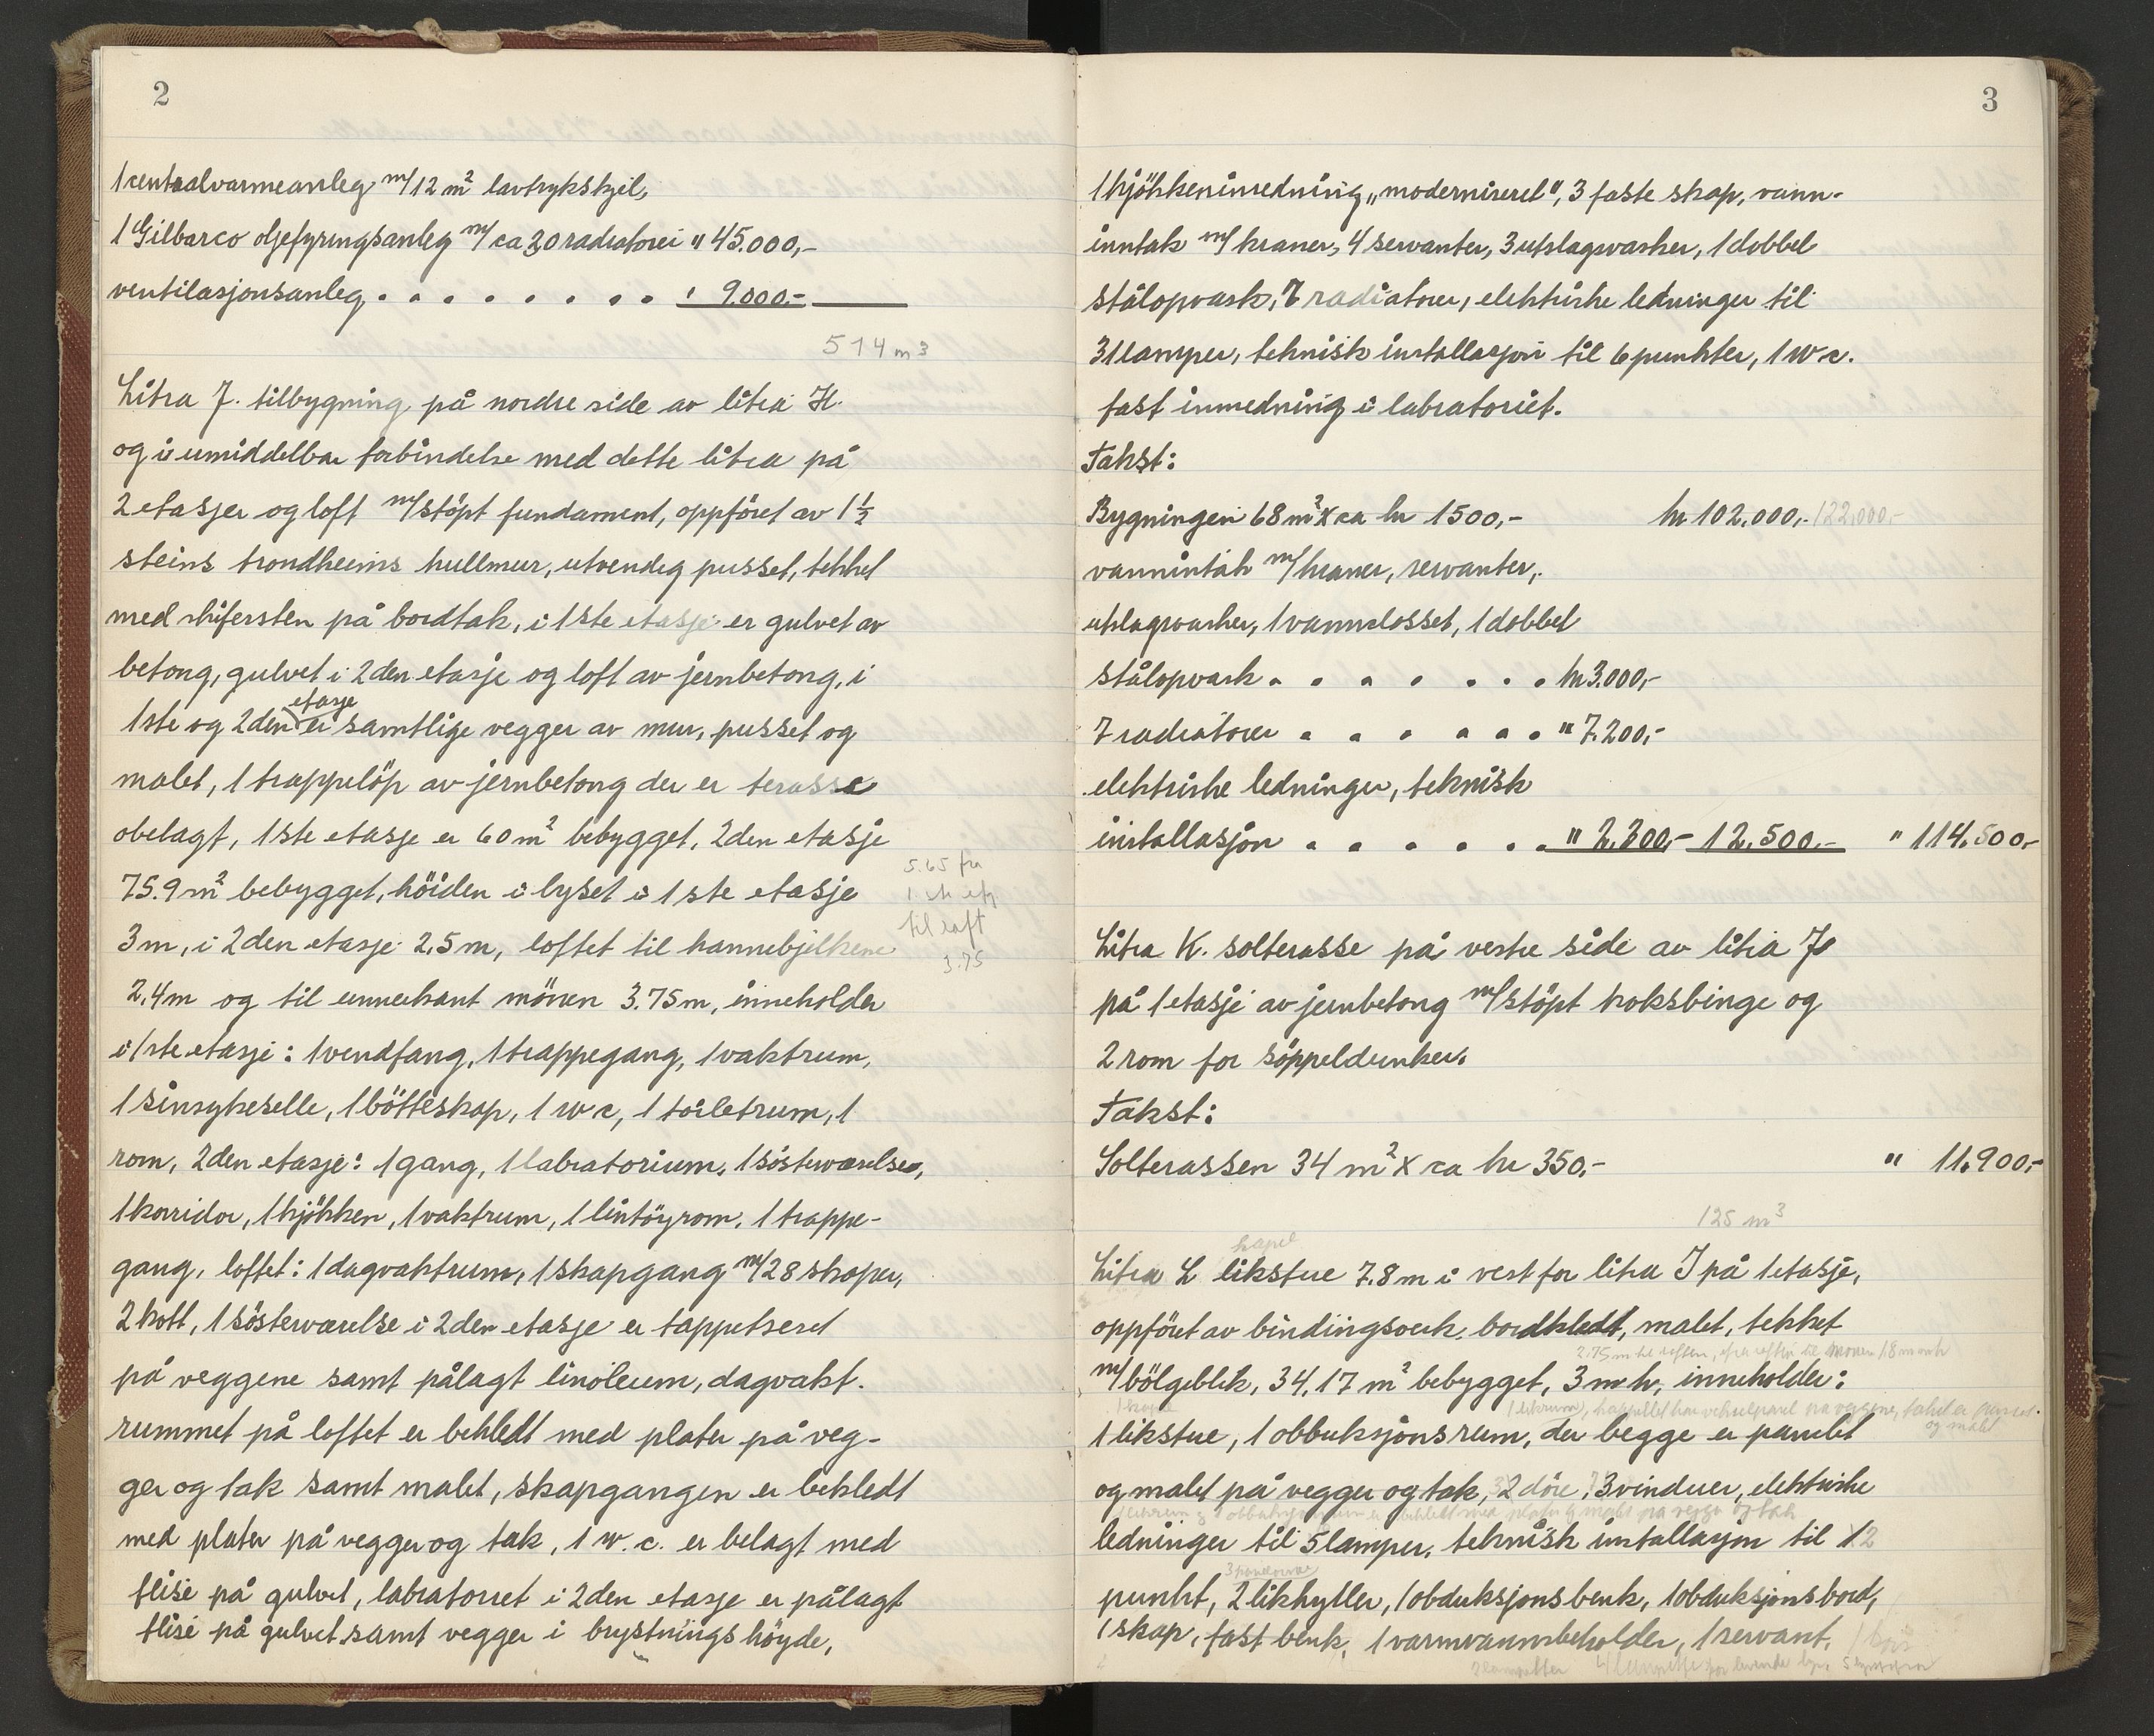 2
1 centralvarmeanleg m/12 m² lavtrykskjel,
1 Gilbarco oljefyringsanleg m/ ca 30 radiatorer " 45.000,-
ventilasjonsanleg . . . . . . . . " 9.000.-
514 m³
Litra J. tilbygning på nordre side av litra H.
og i umiddelbar forbindelse med dette litra på
2 etasjer og loft m/støpt fundament, oppföret av 1½
steins trondheims hullmur, utvendig pusset, tekket
med skifersten på bordtak, i 1ste etasje er gulvet av
betong, gulvet i 2den etasje og loft av jernbetong, i
etasje
1ste og 2den er samtlige vegger av mur, pusset og
malet, 1 trappelöp av jernbetong der er terasse
obelagt, 1ste etasje er 60 m² bebygget, 2den etasje
5.65 fra
75.9 m² bebygget, höiden i lyset i 1ste etasje
1 ste etg
3 m, i 2den etasje 2,5 m, loftet til hannebjelkene
til loft
3.75
2,4 m og til underkant mönen 3.75 m, inneholder
i 1ste etasje: 1 vindfang, 1 trappegang, 1 vaktrum,
1 sinsykeselle, 1 bötteskap, 1 w c, 1 toiletrum, 1
rom, 2den etasje: 1 gang, 1 labratorium, 1 sösterværelse,
1 korridor, 1 kjökken, 1 vaktrum, 1 lintöyrom, 1 trappe-
gang, loftet: 1 dagvaktrum, 1 skapgang m/28 skaper,
2 kott, 1 sösterværelse i 2den etasje er tappetseret
på veggene samt pålagt linoleum, dagvakt-
rummet på loftet er bekledt med plater på veg-
ger og tak samt malet, skapgangen er bekledt
med plater på vegger og tak, 1 w.c. er belagt med
flise på gulvet, labratoriet i 2den etasje er pålagt
flise på gulvet samt vegger i brystningshöyde,
3
1 kjökkeninnredning „moderniseret", 3 faste skap, vann-
inntak m/ kraner, 4 servanter, 3 utslagsvasker, 1 dobbel
stålopvask, 7 radiatorer, elektriske ledninger til
31 lamper, teknisk installasjon til 6 punkter, 1 w c.
fast innredning i labratoriet.
Takst:
Bygningen 68 m² x ca kr 1500,- kr 102.000,- 122.000,-
vanninntak m/ kraner, servanter,
utslagsvasker, 1 vannclosset, 1 dobbel
stålopvask . . . . . . . kr 3.000,-
7 radiatorer . . . . . . " 7.200,-
elektriske ledninger, teknisk
installasjon . . . . . . " 2.300,- 12.500.- " 114.500,-
Litra K. solterasse på vestre side av litra J
på 1 etasje av jernbetong m/ støpt koksbinge og
2 rom for söppeldunker.
Takst:
Solterassen 34 m² x ca kr 350,- " 11.900,-
125 m³
kapel
Litra L likstue 7.8 m i vest for litra J på 1 etasje,
oppföret av bindingsverk, bordkledt, malet, tekket
m/ bölgeblik, 34,17 m² bebygget, 3 m h, inneholder:
og malt
1 likstue, 1 obbuksjonsrum, der begge er panelet
og malet på vegger og tak, 2 döre, 3 vinduer, elektriske
ledninger til 5 lamper, teknisk installasjon til 12
punkt, 2 likhyller, 1 obduksjonsbenk, 1 obduksjonsbord,
1 skap, fast benk, 1 varmvannsbeholder, 1 servant,